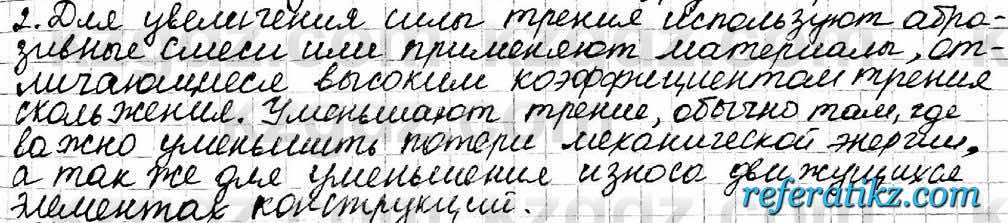 2. Для увеличения силы трения используют абра-
зивные смеси или применяют материалы, от-
личающиеся высоким коэффициентом трения
скольжения. Уменьшают трение, обычно там, где
важно уменьшить потери механической энергии,
а так же для уменьшения износа движущихся
элементах конструкций.
referatikz.com